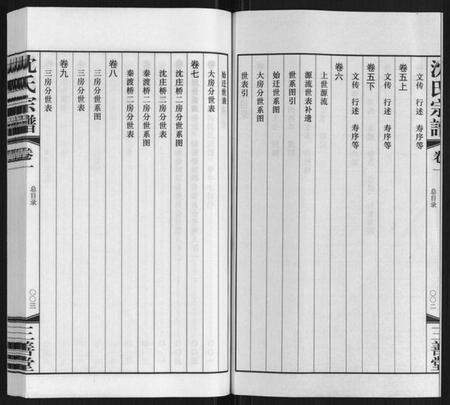 沈氏宗譜
卷一
总目录
〇〇二
三善堂
卷五上
文传 行述 寿序等
卷五下
文传 行述 寿序等
卷六
上世源流
源流世表补遗
世系引
始迁世系图
大房分世系图
世表引
始迁世表
大房分世表
卷七
沈庄桥二房分世系图
沈庄桥二房分世表
秦渡桥二房分世系图
秦渡桥二房分世表
卷八
三房分世系图
三房分世表
卷九
三房分世表
沈氏宗譜
卷一
总目录
〇〇三
三善堂